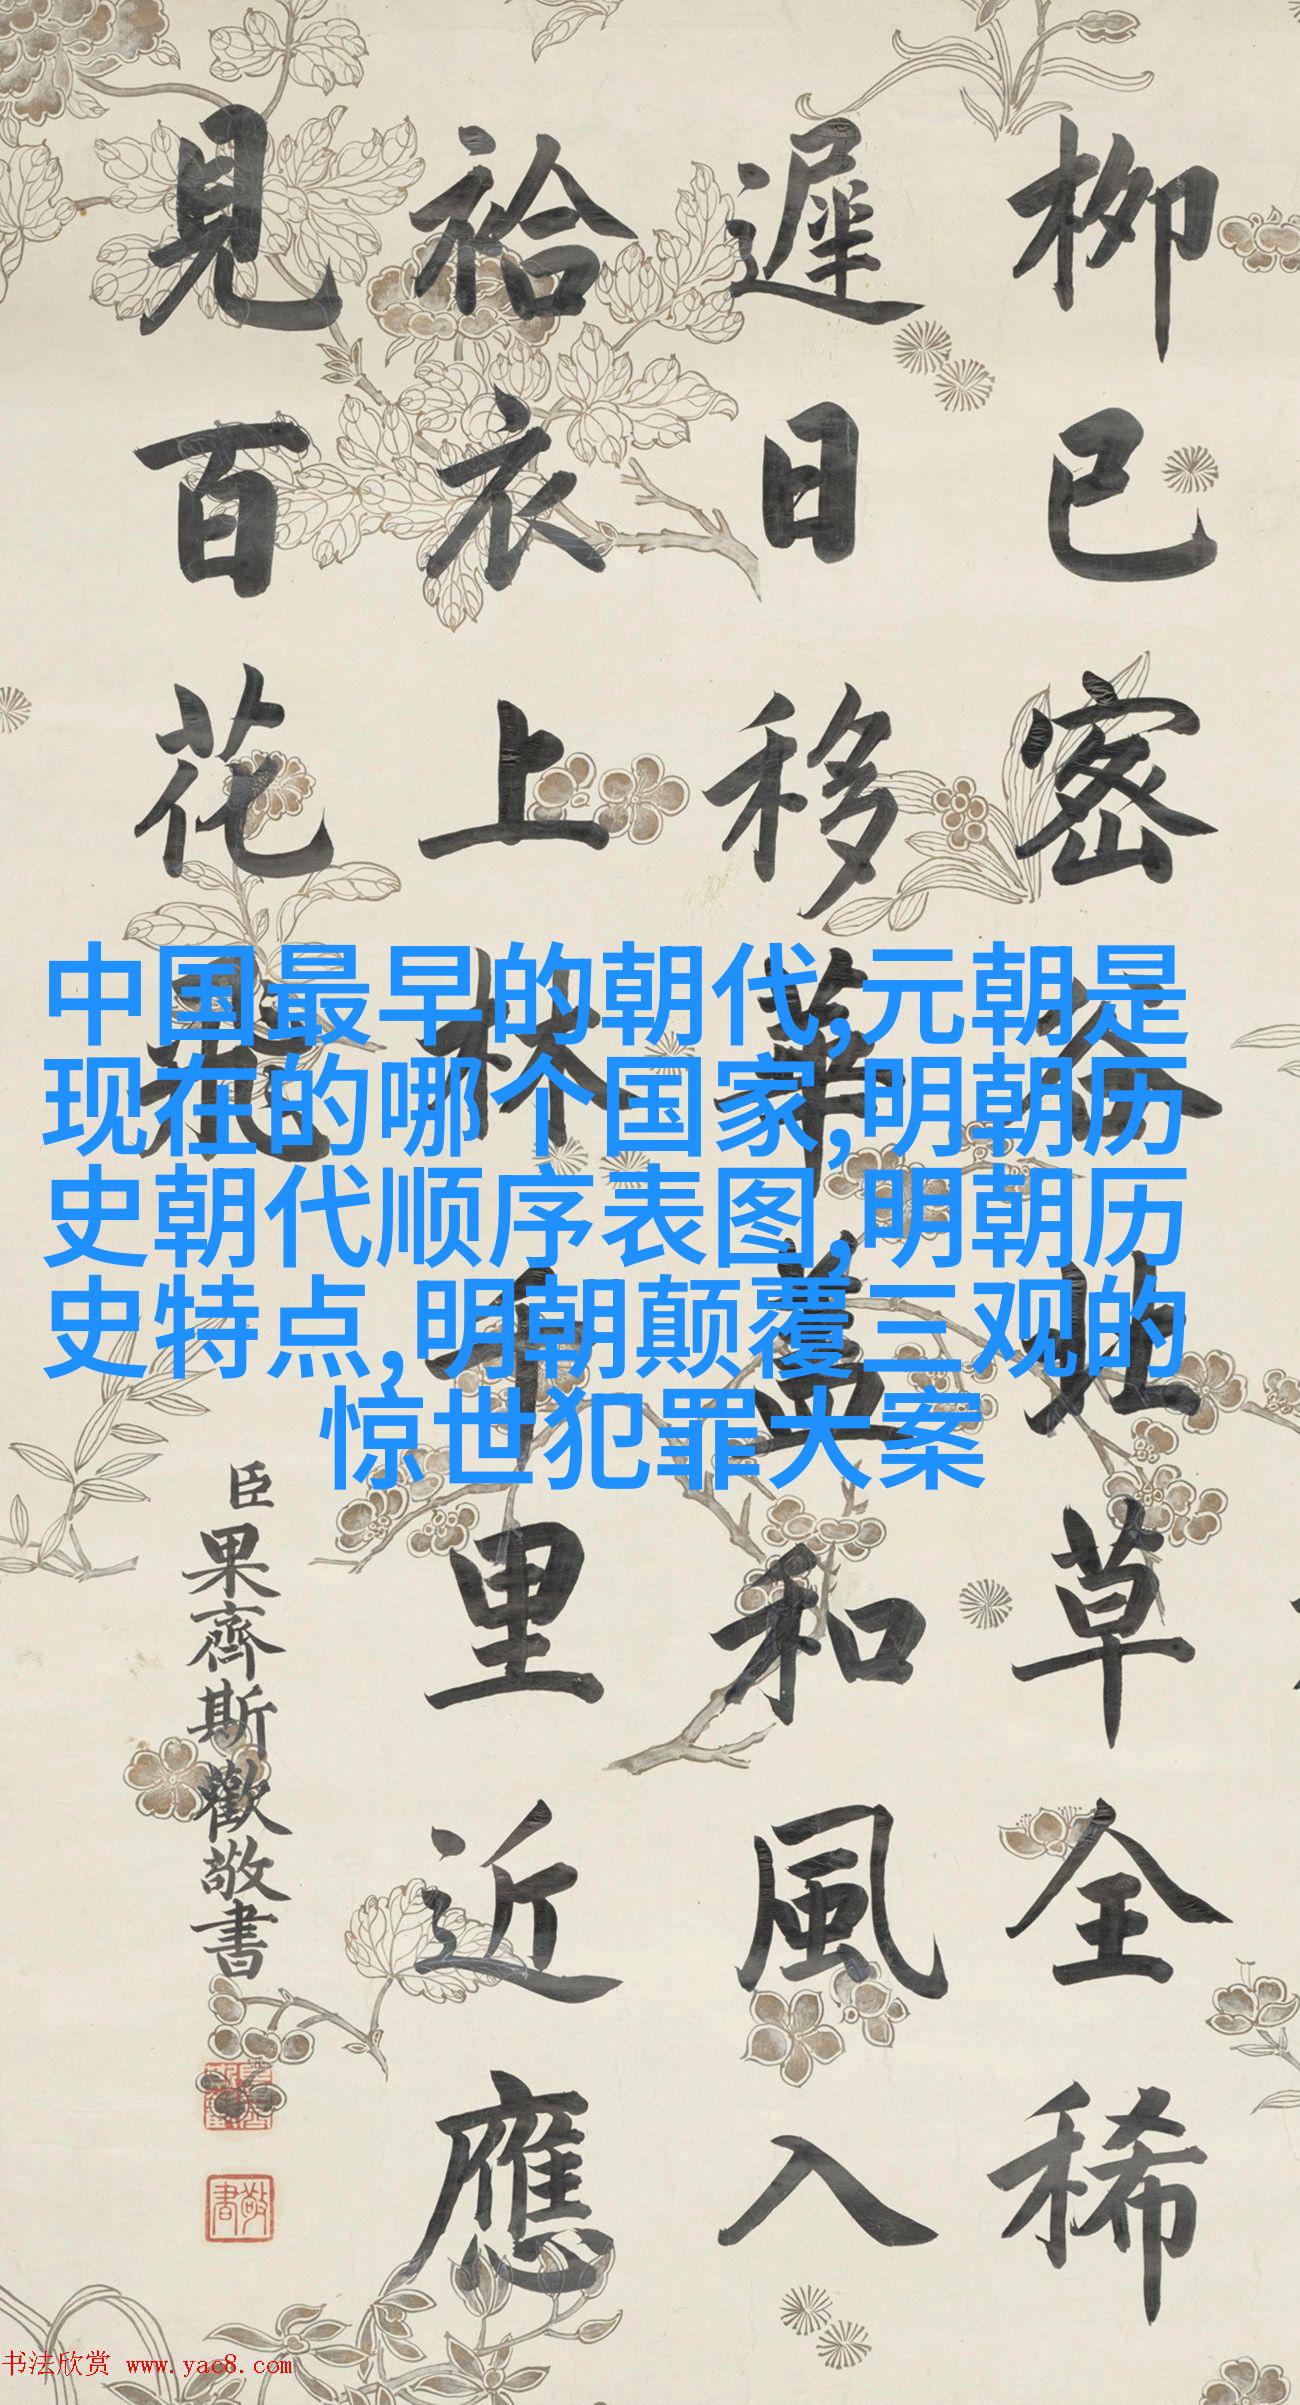 柳已密谷草全稀
遲日移華蓋和風入
袷衣上林千里近應
見百花飛
臣果齊斯歡敬書
中国最早的朝代,元朝是
现在的哪个国家,明朝历
史朝代顺序表图,明朝历
史特点,明朝颠覆三观的
惊世犯罪大案
书法欣赏 www.yac8.com